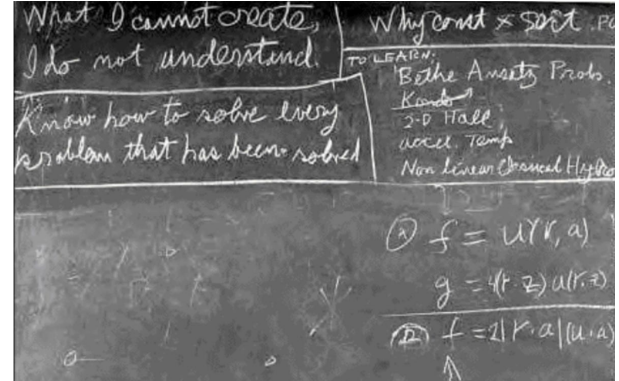 What I cannot create,
I do not understand.
Know how to solve every
problem that has been solved
Why const × sort .PO
TO LEARN:
Bethe Ansatz Probs.
Kondo
2-D Hall
accel. Temp
Non linear Classical Hydro
f = U(r, a)
g = 4(r·z) u(r,z)
f = 2|r·a|(u·a)